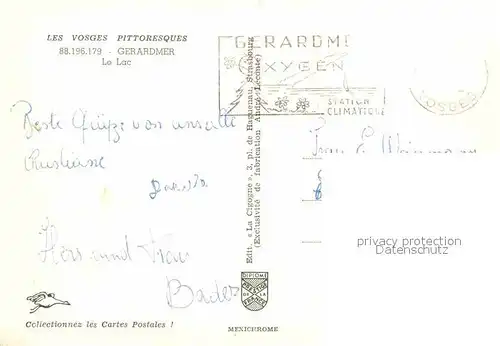 LES VOSGES PITTORESQUES
88.196.179 - GERARDMER
Le Lac
GERARDME
OXYGEN
STATION
CLIMATIQUE
VOSGES
Beste Grüße von
Herr und Frau
Bader
Frau E.
privacy protection
Datenschutz
Edit. « La Cigogne », 3, pl. de Haguenau, Strasbourg
(Exclusivité de fabrication André Leconte)
DIPLOME
PRESTIGE
DE LA
FRANCE
Collectionnez les Cartes Postales !
MEXICHROME